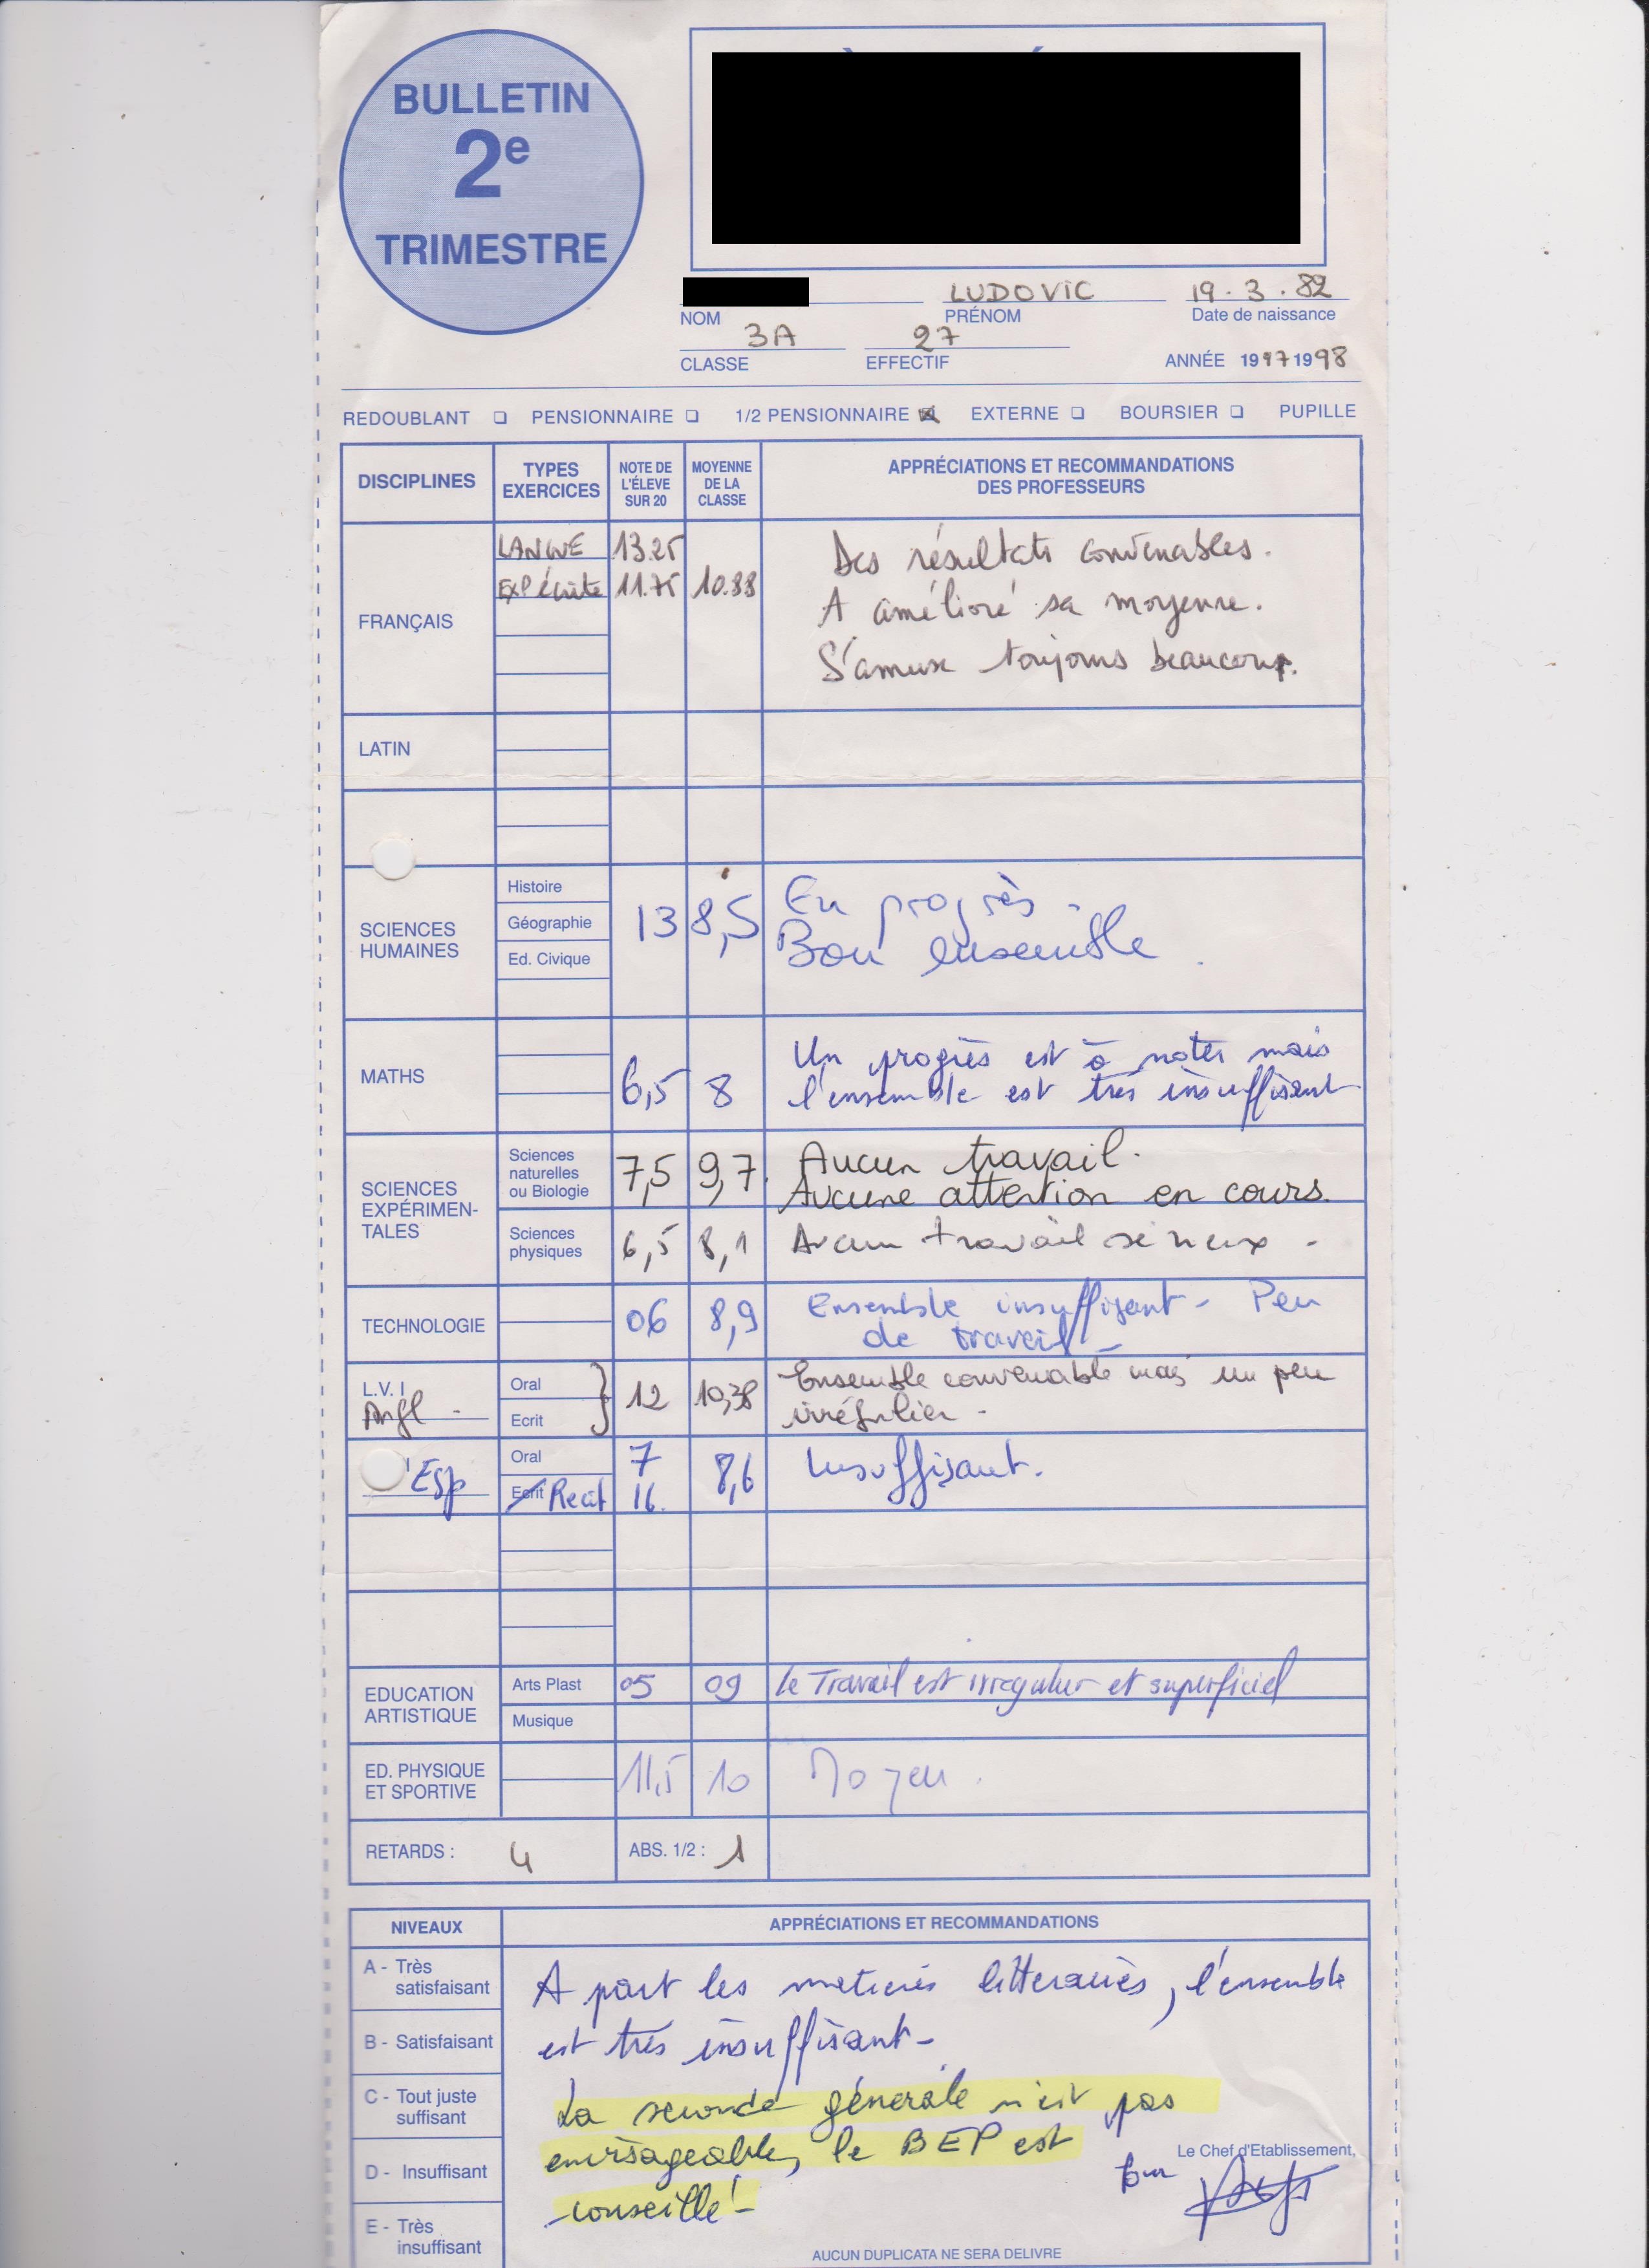 BULLETIN
2e
TRIMESTRE
LUDOVIC 19.3.82
NOM PRÉNOM Date de naissance
3A 27
CLASSE EFFECTIF ANNÉE 1997 1998
REDOUBLANT ❑ PENSIONNAIRE ❑ 1/2 PENSIONNAIRE ☒ EXTERNE ❑ BOURSIER ❑ PUPILLE
DISCIPLINES TYPES EXERCICES NOTE DE L'ÉLEVE SUR 20 MOYENNE DE LA CLASSE APPRÉCIATIONS ET RECOMMANDATIONS DES PROFESSEURS
FRANÇAIS
LANGUE 13.25
EXP écrite 11.75 10.88
Des résultats convenables.
A amélioré sa moyenne.
S'amuse toujours beaucoup.
LATIN
SCIENCES HUMAINES
Histoire
Géographie
Ed. Civique
13 8,5
En progrès.
Bon ensemble.
MATHS
6,5 8
Un progrès est à noter mais
l'ensemble est très insuffisant
SCIENCES EXPÉRIMEN-TALES
Sciences naturelles ou Biologie 7,5 9,7
Aucun travail.
Aucune attention en cours.
Sciences physiques 6,5 8,1 Aucun travail sérieux -
TECHNOLOGIE 06 8,9
Ensemble insuffisant - Peu
de travail -
L.V. I
Angl.
Oral
Ecrit
12 10,38
Ensemble convenable mais un peu
irrégulier -
Esp
Oral 7
Ecrit Recit 16.
8,6 Insuffisant.
EDUCATION ARTISTIQUE
Arts Plast 05 09 Le Travail est irregulier et superficiel
Musique
ED. PHYSIQUE ET SPORTIVE 11,5 10 Moyen.
RETARDS : 4 ABS. 1/2 : 1
NIVEAUX APPRÉCIATIONS ET RECOMMANDATIONS
A - Très satisfaisant
B - Satisfaisant
C - Tout juste suffisant
D - Insuffisant
E - Très insuffisant
A part les matières littéraires, l'ensemble
est très insuffisant -
La seconde générale n'est pas
envisageable, le BEP est
conseillé !
Le Chef d'Etablissement,
AUCUN DUPLICATA NE SERA DELIVRE